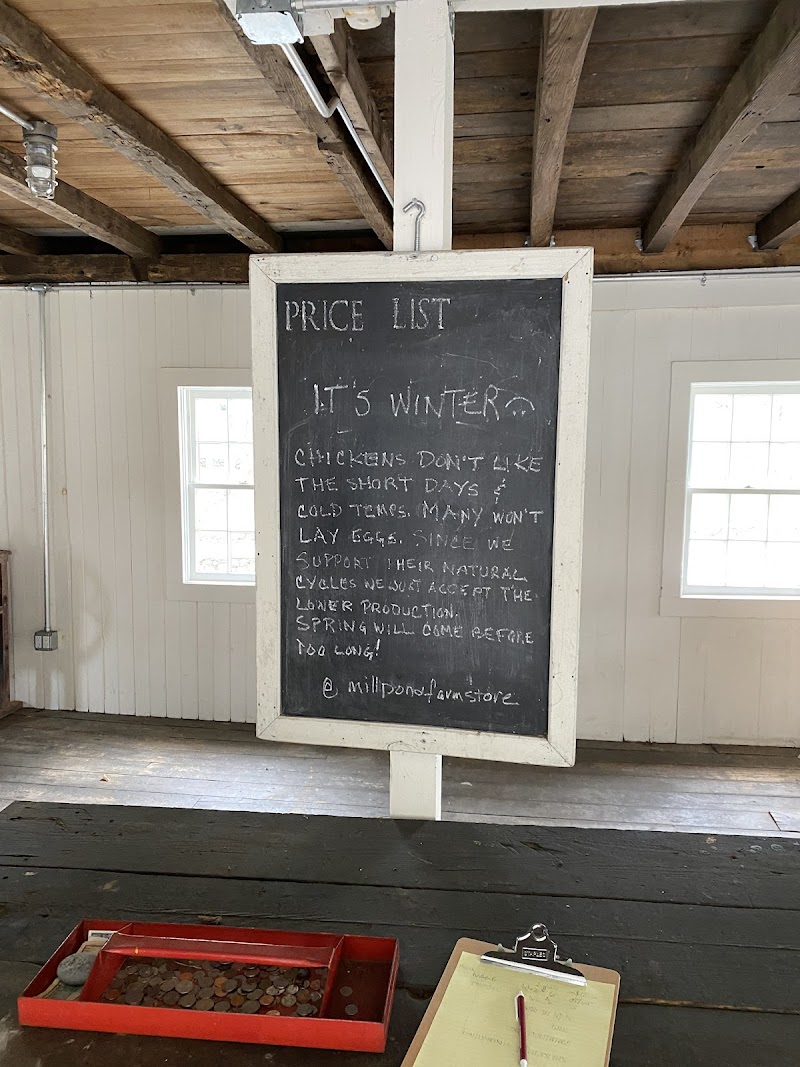 PRICE LIST
IT'S WINTER
CHICKENS DON'T LIKE
THE SHORT DAYS &
COLD TEMPS. MANY WON'T
LAY EGGS. SINCE WE
SUPPORT THEIR NATURAL
CYCLES WE JUST ACCEPT THE
LOWER PRODUCTION.
SPRING WILL COME BEFORE
TOO LONG!
@ millpondfarmstore
STAPLES